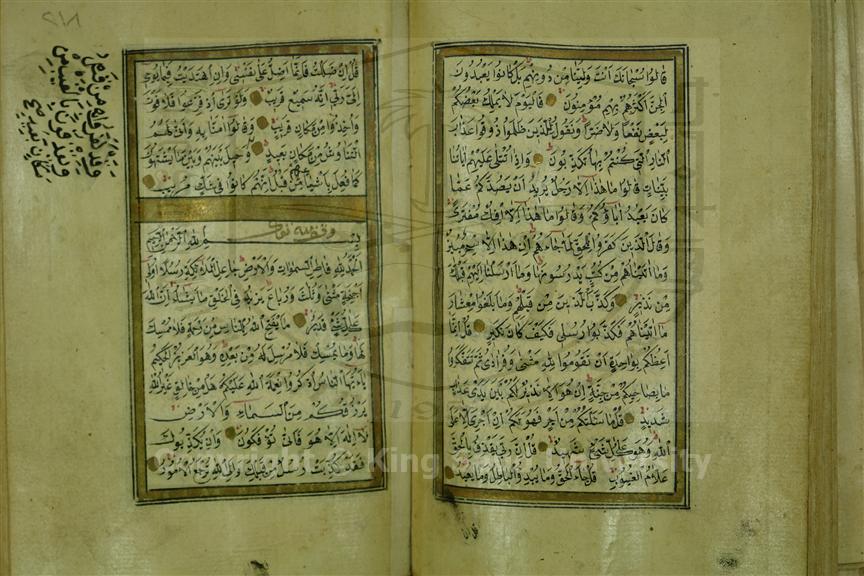 قالوا سبحانك أنت ولينا من دونهم بل كانوا يعبدون
الجن أكثرهم بهم مؤمنون فاليوم لا يملك بعضكم
لبعض نفعا ولا ضرا ونقول للذين ظلموا ذوقوا عذاب
النار التي كنتم بها تكذبون وإذا تتلى عليهم آياتنا
بينات قالوا ما هذا إلا رجل يريد أن يصدكم عما
كان يعبد آباؤكم وقالوا ما هذا إلا إفك مفترى
وقال الذين كفروا للحق لما جاءهم إن هذا إلا سحر مبين
وما آتيناهم من كتب يدرسونها وما أرسلنا إليهم قبلك
من نذير وكذب الذين من قبلهم وما بلغوا معشار
ما آتيناهم فكذبوا رسلي فكيف كان نكير قل إنما
أعظكم بواحدة أن تقوموا لله مثنى وفرادى ثم تتفكروا
ما بصاحبكم من جنة إن هو إلا نذير لكم بين يدي عذاب
شديد قل ما سألتكم من أجر فهو لكم إن أجري إلا على
الله وهو على كل شيء شهيد قل إن ربي يقذف بالحق
علام الغيوب قل جاء الحق وما يبدئ الباطل وما يعيد
قل إن
٢١٨
قل إن ضللت فإنما أضل على نفسي وإن اهتديت فبما يوحي
إلي ربي إنه سميع قريب ولو ترى إذ فزعوا فلا فوت
وأخذوا من مكان قريب وقالوا آمنا به وأنى لهم
التناوش من مكان بعيد وحيل بينهم وبين ما يشتهون
كما فعل بأشياعهم من قبل إنهم كانوا في شك مريب
وقد كفروا به من قبل
ويقذفون بالغيب من
مكان بعيد صح
وقف لله تعالى
بسم الله الرحمن الرحيم
الحمد لله فاطر السموات والأرض جاعل الملائكة رسلا أولي
أجنحة مثنى وثلث ورباع يزيد في الخلق ما يشاء إن الله
على كل شيء قدير ما يفتح الله للناس من رحمة فلا ممسك
لها وما يمسك فلا مرسل له من بعده وهو العزيز الحكيم
يا أيها الناس اذكروا نعمة الله عليكم هل من خالق غير الله
يرزقكم من السماء والأرض
لا إله إلا هو فأنى تؤفكون وإن يكذبوك
فقد كذبت رسل من قبلك وإلى الله ترجع الأمور
Copyright © King Saud University
1957